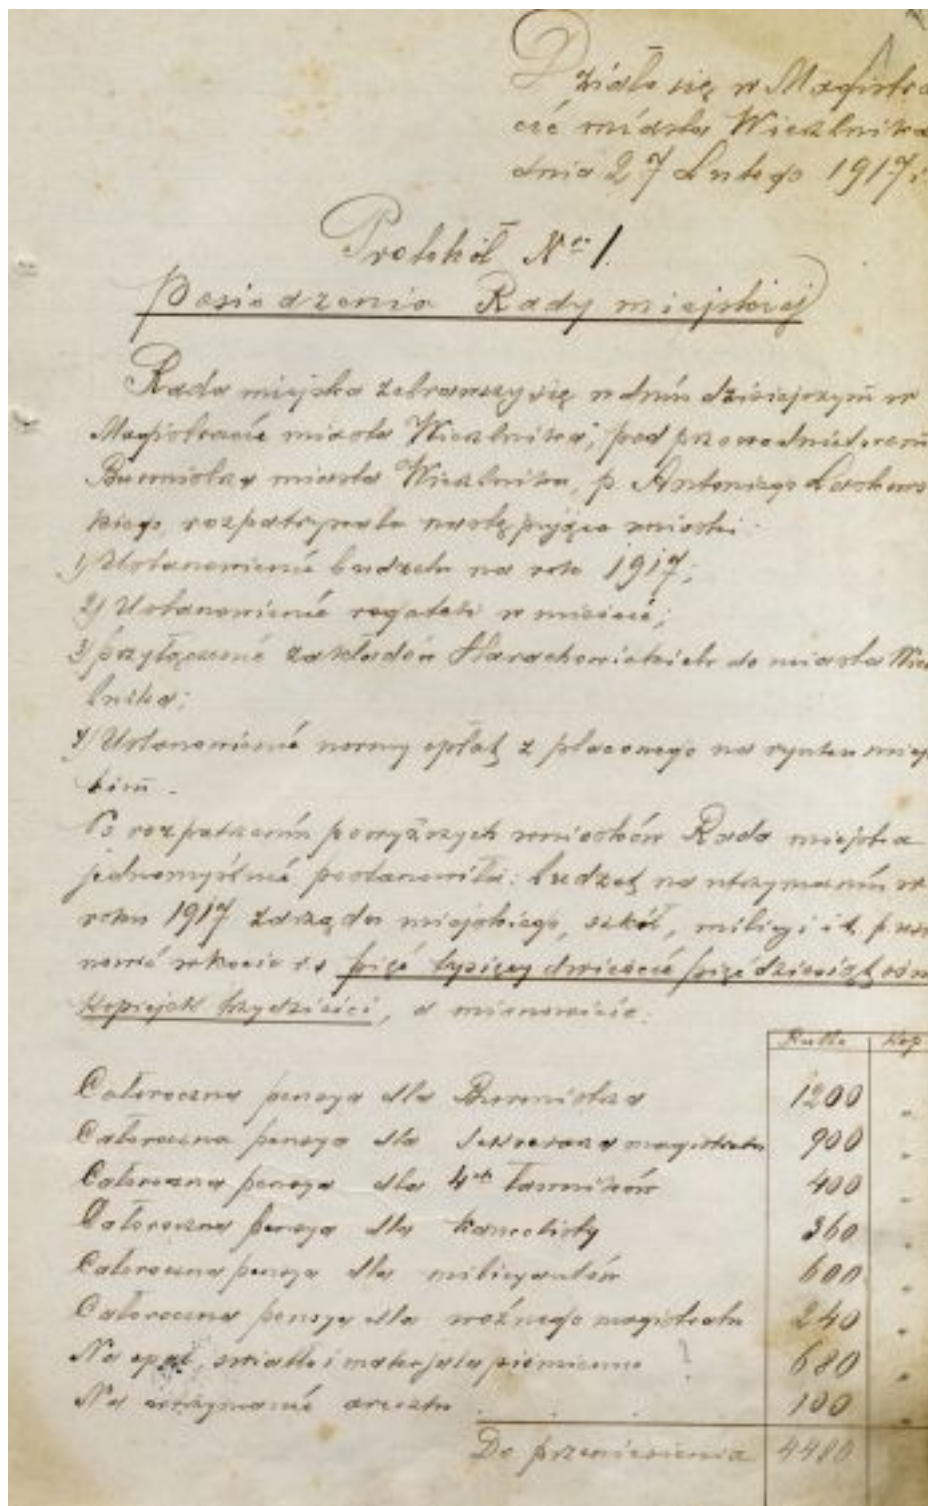 Działo się w Magistra
cie miasta Wierzbnika
dnia 27 Lutego 1917 r
Protokół No 1.
Posiedzenia Rady miejskiej
Rada miejska zebrawszy się w dniu dzisiejszym w
Magistracie miasta Wierzbnika, pod przewodnictwem
Burmistrza miasta Wierzbnika, p. Antoniego Laskows
kiego, rozpatrywała następujące wnioski:
1) Ustanowienie budżetu na rok 1917;
2) Ustanowienie rogatek w mieście;
3) przyłączenie zakładów Starachowickich do miasta Wierz
bnika;
4) Ustanowienie normy opłat z placowego na rynku miejs
kim.
Po rozpatrzeniu powyższych wniosków Rada miejska
jednomyślnie postanowiła: budżet na utrzymaniu w
roku 1917 zarządu miejskiego, szkół, milicyi i t. p.
rs pięć tysięcy dwieście pięćdziesiąt ośm
kopiejek trzydzieści, a mianowicie:
Ruble Kop
Całoroczna pensya dla Burmistrza 1200 "
Całoroczna pensya dla Sekretarza magistratu 900 "
Całoroczna pensya dla 4ch Ławników 400 "
Całoroczna pensya dla kancelisty 360 "
Całoroczna pensya dla milicyantów 600 "
Całoroczna pensya dla woźnego magistratu 240 "
Na opał, światło i materjały piśmienne 680 "
Na utrzymanie aresztu . . . 100 "
Do przeniesienia 4480